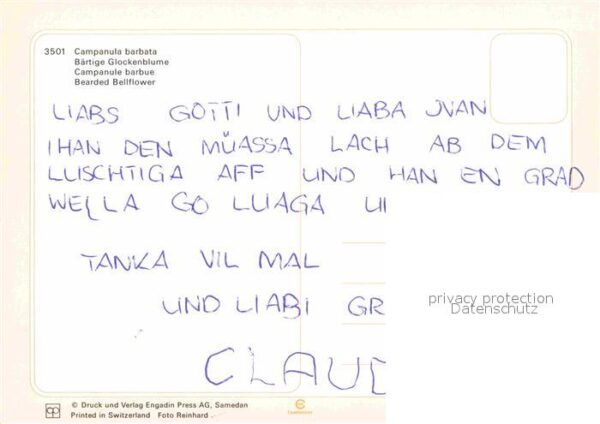 3501 Campanula barbata
Bärtige Glockenblume
Campanule barbue
Bearded Bellflower
LIABS GOTTI UND LIABA JVAN
IHAN DEN MÜASSA LACH AB DEM
LUSCHTIGA AFF UND HAN EN GRAD
WELLA GO LUAGA
TANKA VIL MAL
UND LIABI GR
CLAUD
privacy protection
Datenschutz
© Druck und Verlag Engadin Press AG, Samedan
Printed in Switzerland Foto Reinhard